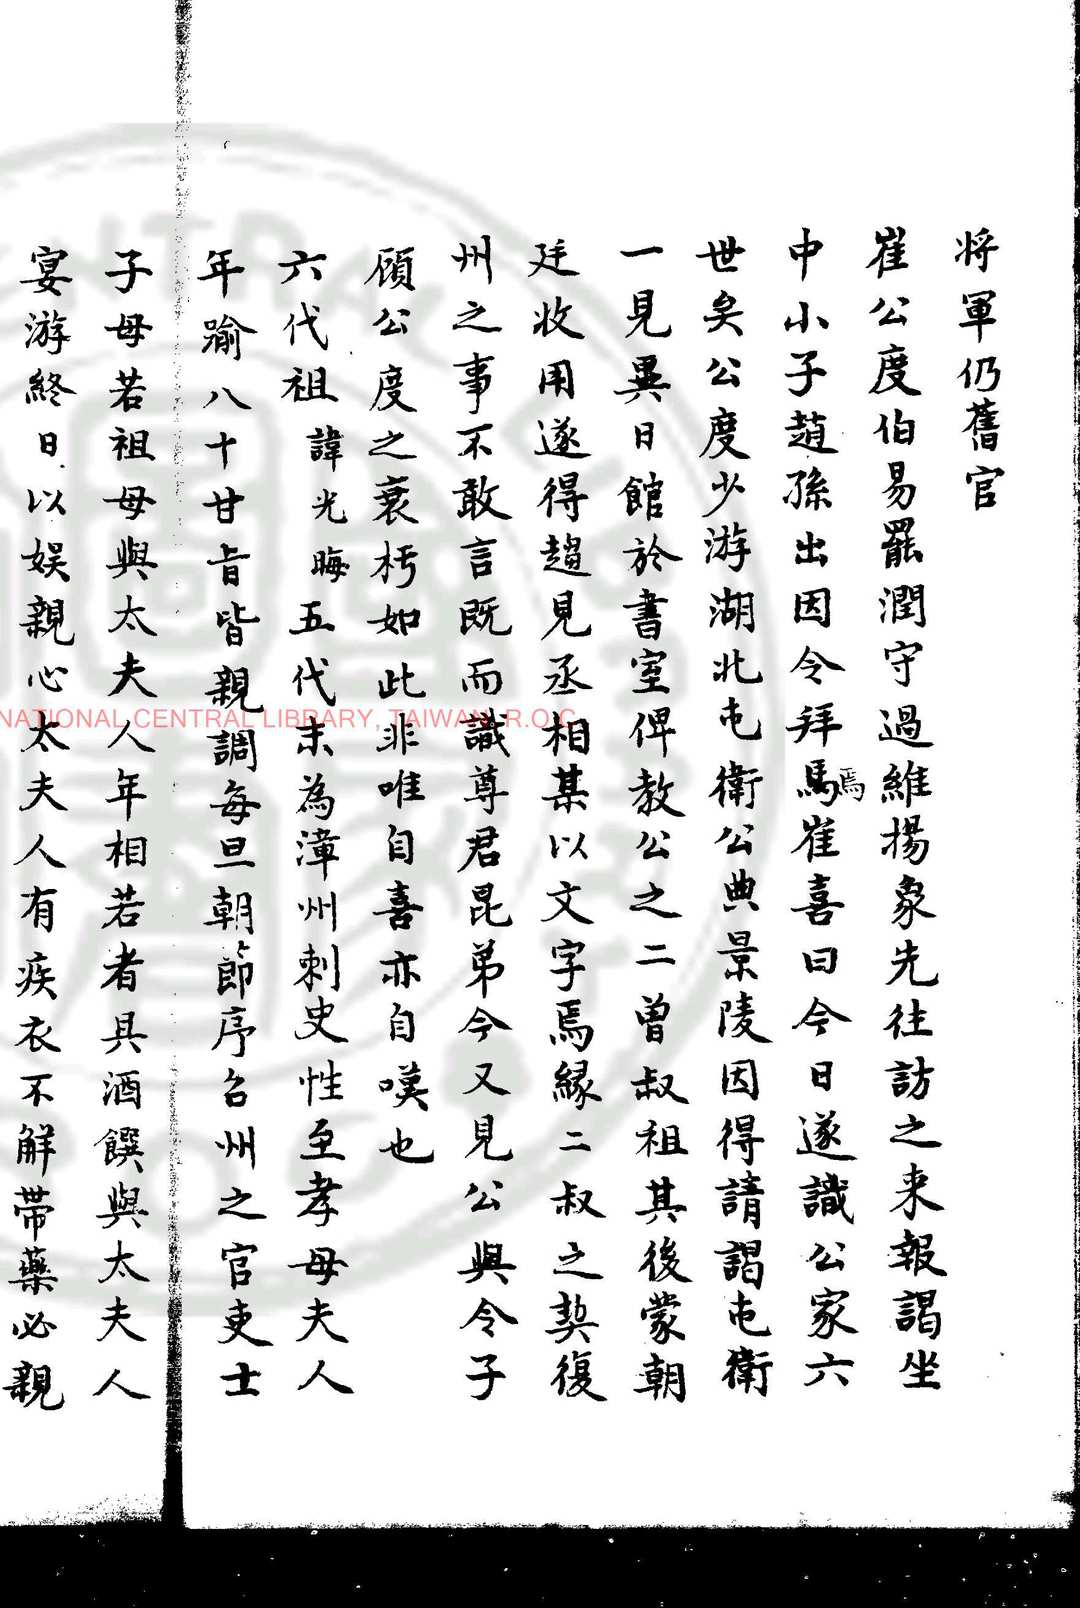 将軍仍舊官
崔公度伯易罷潤守過維揚象先往訪之来報謁坐
中小子趙孫出因令拜馬崔喜曰今日遂識公家六
焉
世矣公度少游湖北屯衛公典景陵因得請謁屯衛
一見異日館於書室俾教公之二曾叔祖其後蒙朝
廷收用遂得趨見丞相某以文字焉緣二叔之契復
州之事不敢言既而識尊君昆弟今又見公與令子
頋公度之衰朽如此非唯自喜亦自嘆也
六代祖諱光晦五代末為漳州刺史性至孝母夫人
年踰八十甘旨皆親調每旦朝節序召州之官吏士
子母若祖母與太夫人年相若者具酒饌與太夫人
宴游終日以娱親心太夫人有疾衣不解帶藥必親
NATIONAL CENTRAL LIBRARY, TAIWAN, R.O.C